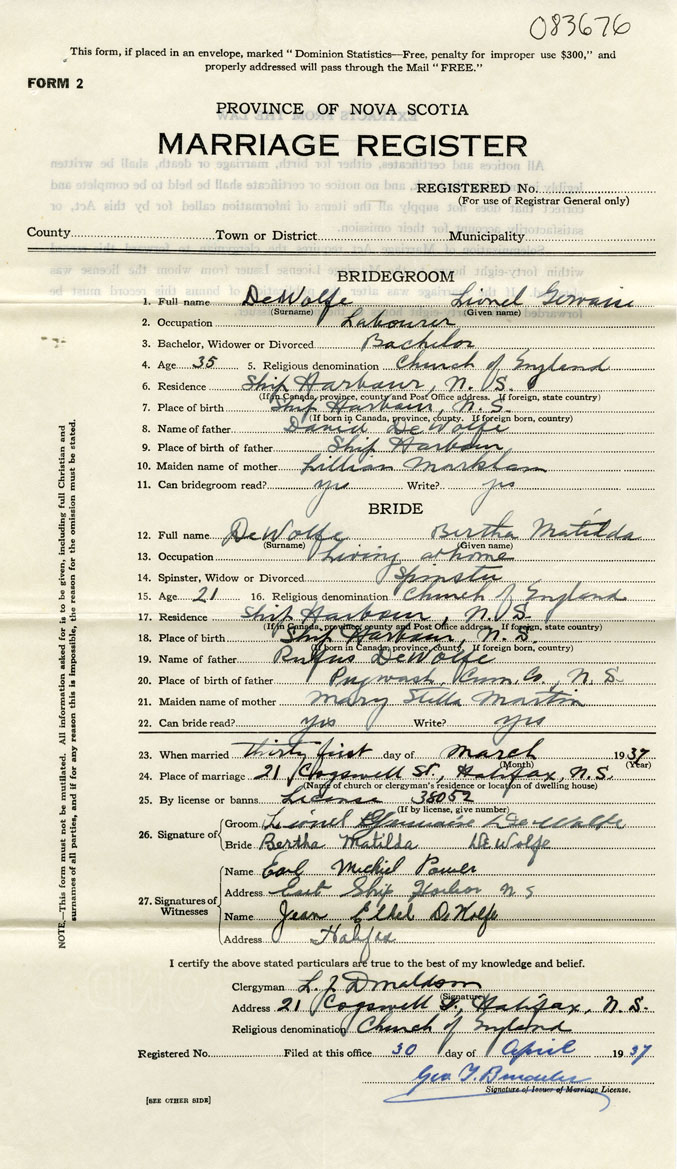 083676
This form, if placed in an envelope, marked "Dominion Statistics—Free, penalty for improper use $300," and
properly addressed will pass through the Mail "FREE."
FORM 2
PROVINCE OF NOVA SCOTIA
MARRIAGE REGISTER
REGISTERED No.
(For use of Registrar General only)
County Town or District Municipality
BRIDEGROOM
1. Full name DeWolfe Lionel
(Surname) (Given name)
2. Occupation Labourer
3. Bachelor, Widower or Divorced Bachelor
4. Age 35 5. Religious denomination Church of England
6. Residence Ship Harbour, N. S.
(If in Canada, province, county and Post Office address. If foreign, state country)
7. Place of birth Ship Harbour, N. S.
(If born in Canada, province, county. If foreign born, country)
8. Name of father David DeWolfe
9. Place of birth of father Ship Harbour
10. Maiden name of mother Lillian Markham
11. Can bridegroom read? yes Write? yes
BRIDE
12. Full name DeWolfe Bertha Matilda
(Surname) (Given name)
13. Occupation Living at home
14. Spinster, Widow or Divorced Spinster
15. Age 21 16. Religious denomination Church of England
17. Residence Ship Harbour, N. S.
(If in Canada, province, county and Post Office address. If foreign, state country)
18. Place of birth Ship Harbour, N. S.
(If born in Canada, province, county. If foreign born, country)
19. Name of father Rufus DeWolfe
20. Place of birth of father Pugwash, Cum. Co., N. S.
21. Maiden name of mother Mary Stella Martin
22. Can bride read? yes Write? yes
23. When married thirty first day of March 1937
(Month) (Year)
24. Place of marriage 21 Cogswell St., Halifax, N. S.
(Name of church or clergyman's residence or location of dwelling house)
25. By license or banns License 38052
(If by license, give number)
26. Signature of
Groom Lionel DeWolfe
Bride Bertha Matilda DeWolfe
27. Signatures of Witnesses
Name Earl Michiel Power
Address East Ship Harbor N S
Name Jean Ethel DeWolfe
Address Halifax
I certify the above stated particulars are true to the best of my knowledge and belief.
Clergyman L. J. Donaldson
(Signature)
Address 21 Cogswell St, Halifax, N. S.
Religious denomination Church of England
Registered No. Filed at this office 30 day of April 1937
Geo. T.
Signature of Issuer of Marriage License.
[SEE OTHER SIDE]
NOTE.—This form must not be mutilated. All information asked for is to be given, including full Christian and
surnames of all parties, and if for any reason this is impossible, the reason for the omission must be stated.